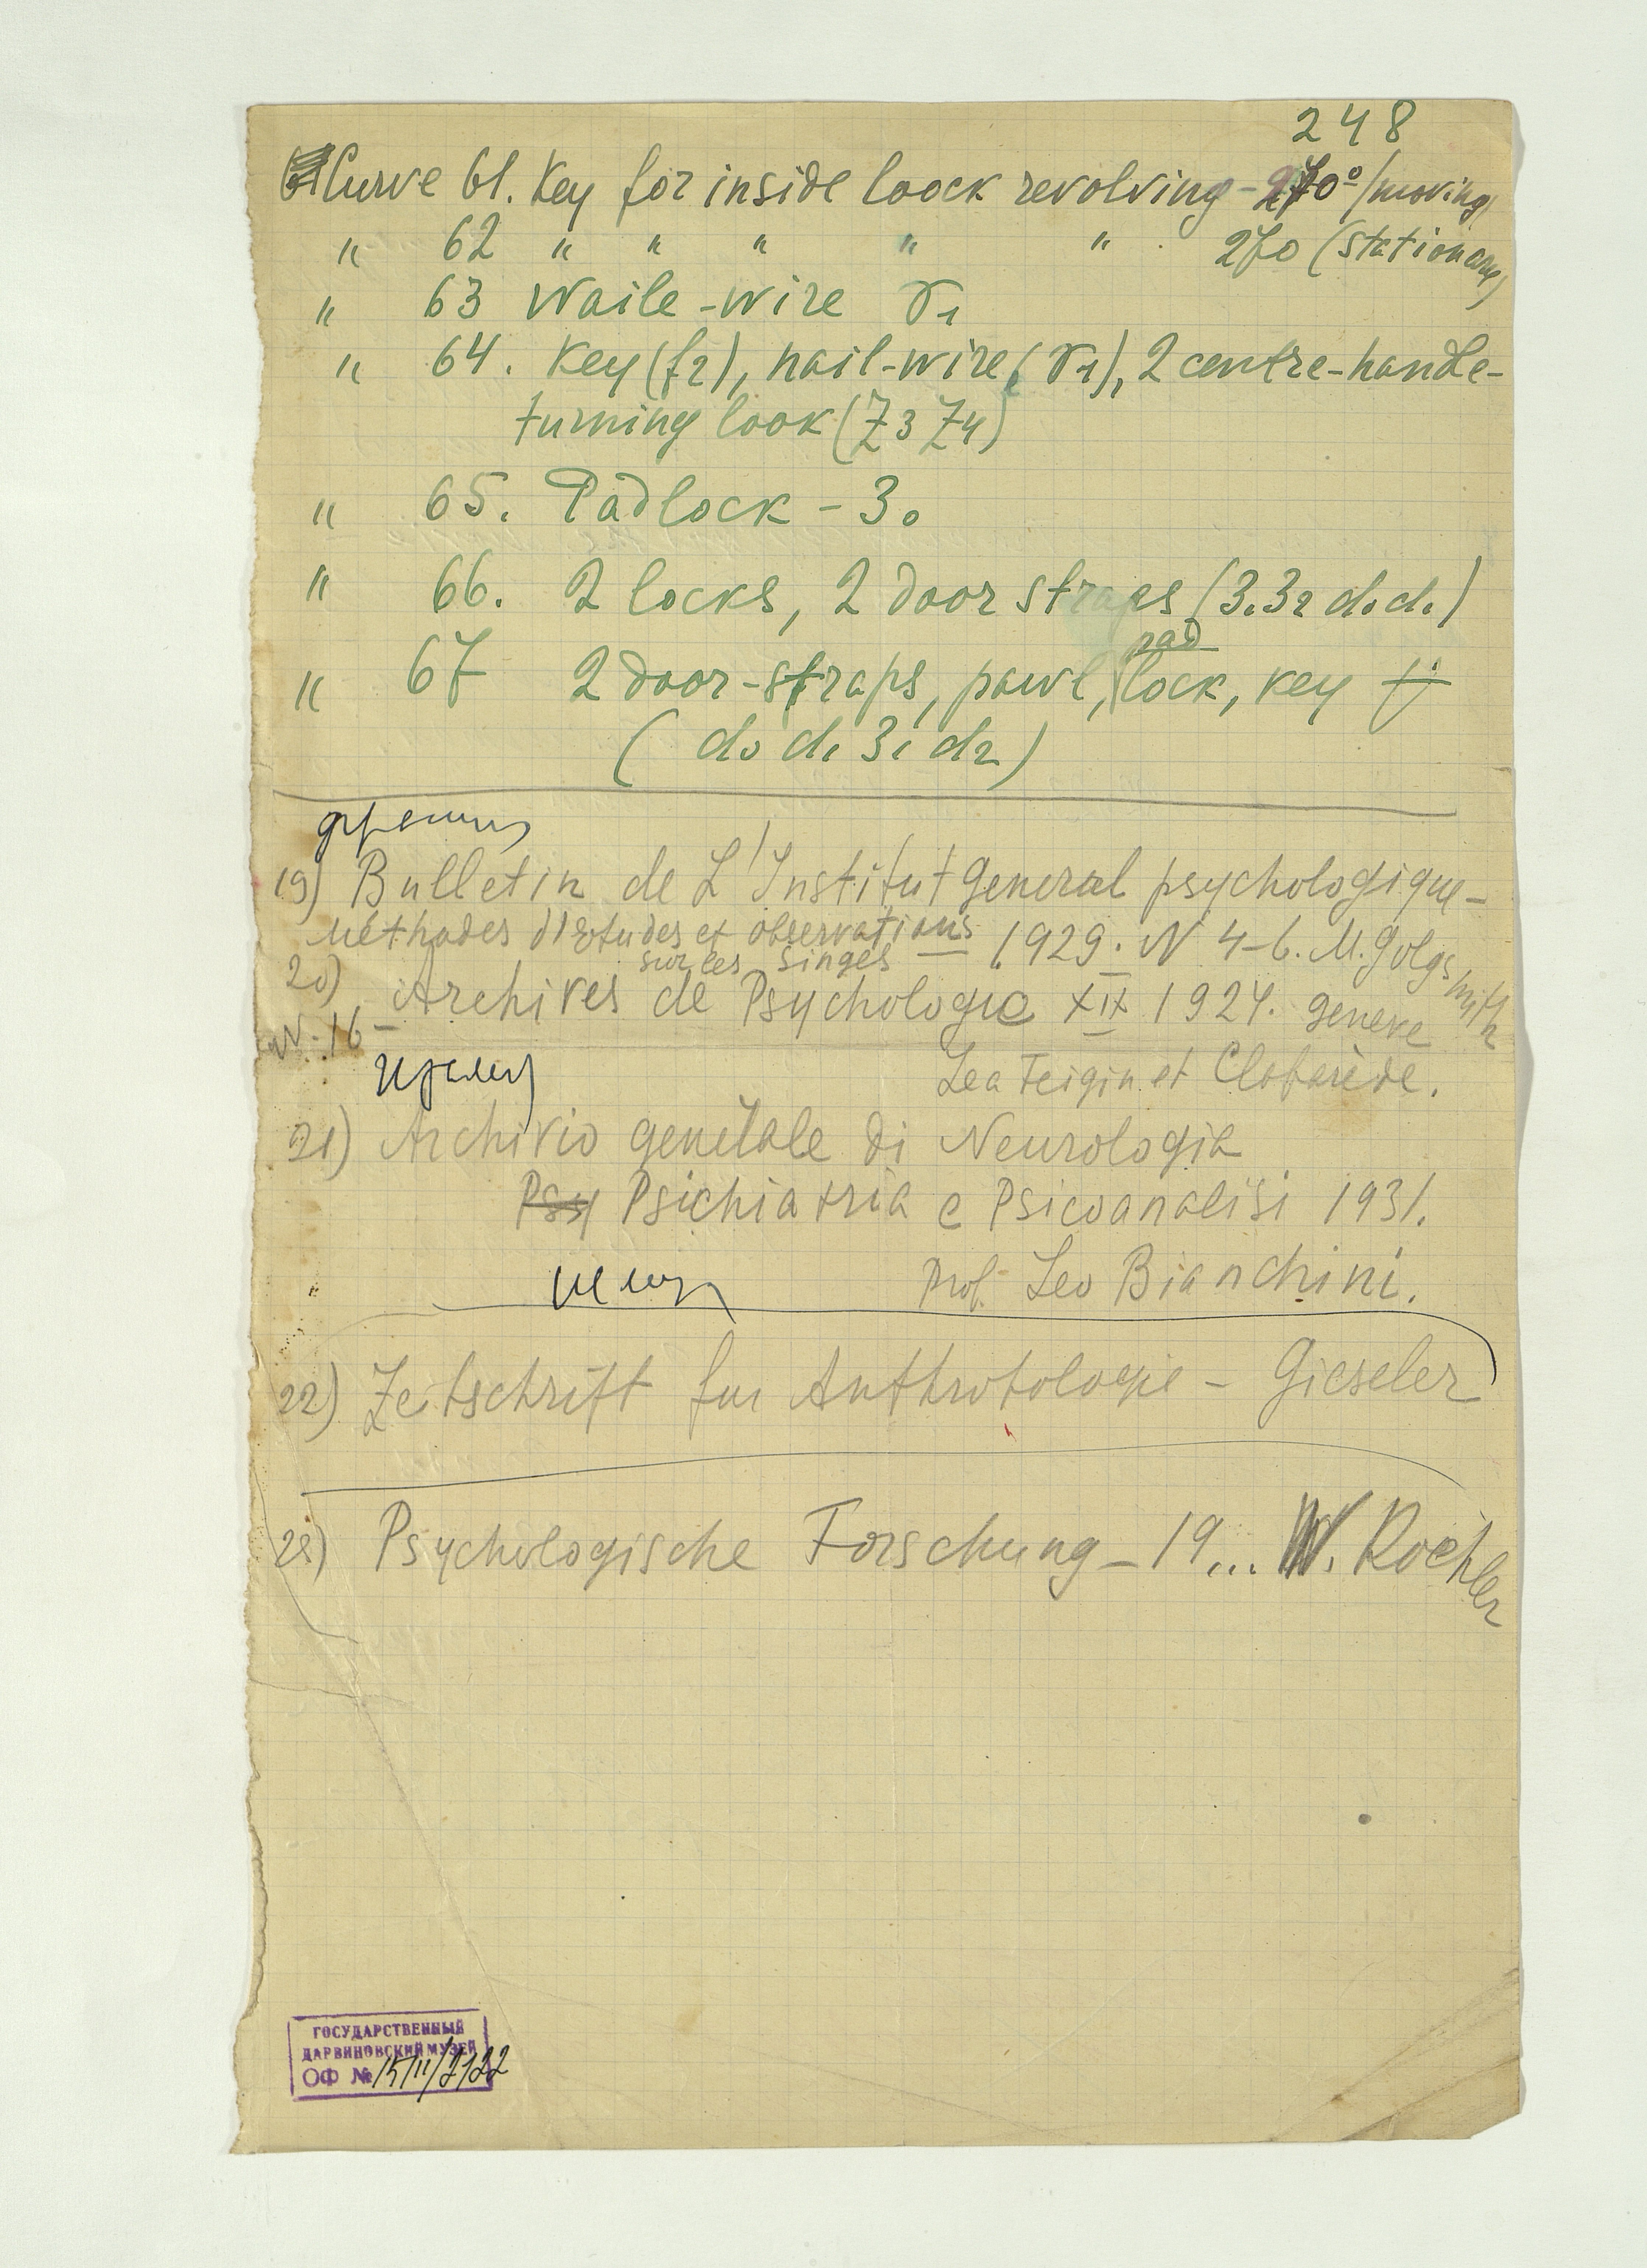 248
Curve 61. Key for inside loock revolving - 270° (moving)
" 62 " " " " " 270 (stationary)
" 63 Naile-wire γ1
" 64. Key (f2), nail-wire (γ1), 2 centre-handle-
turning look (Z3 Z4)
" 65. Padlock - 30
" 66. 2 locks, 2 door straps (3132 d0d1)
pad
" 67 2 door-straps, pawl, lock, key
(d0 d1 31 d2)
19) Bulletin de L'Institut General psychologique -
Méthodes d'etudes et observations
sur les singes — 1929. N 4-6. M. Golgsmith
20) Archives de Psychologie XIX 1924. Geneve
N. 16 -
Lea Feigin et Claparède.
21) Archivio generale di Neurologia
Psy Psichiatria e Psicoanalisi 1931.
Prof. Leo Bianchini.
22) Zeitschrift fur Anthropologie - Gieseler
23) Psychologische Forschung - 19... W. Koehler
ГОСУДАРСТВЕННЫЙ
ДАРВИНОВСКИЙ МУЗЕЙ
ОФ №